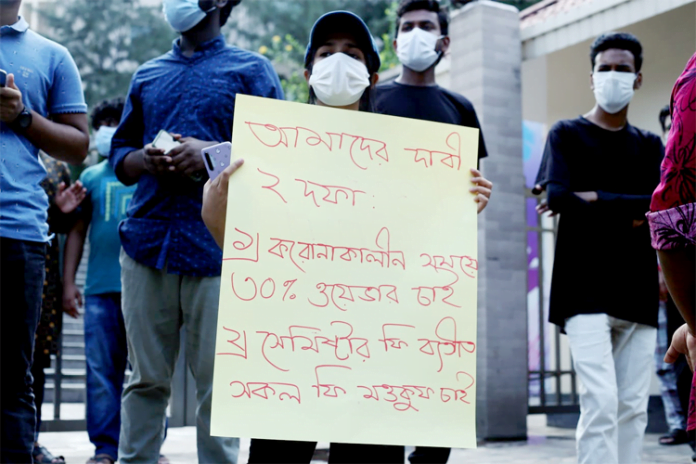 আমাদের দাবী
২ দফা:
১) করোনাকালীন সময়ে
৩০% ওয়েভার চাই
২) সেমিষ্টার ফি ব্যতীত
সকল ফি মওকুফ চাই